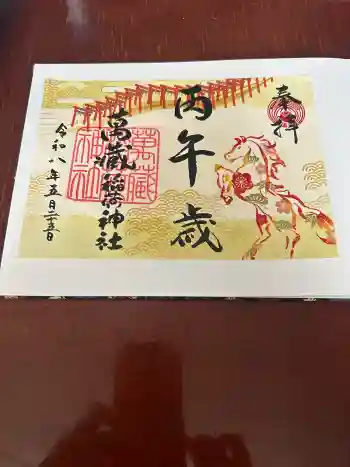 奉拝
丙午歳
萬蔵稲荷神社
萬蔵
神社
令和八年五月二十五日